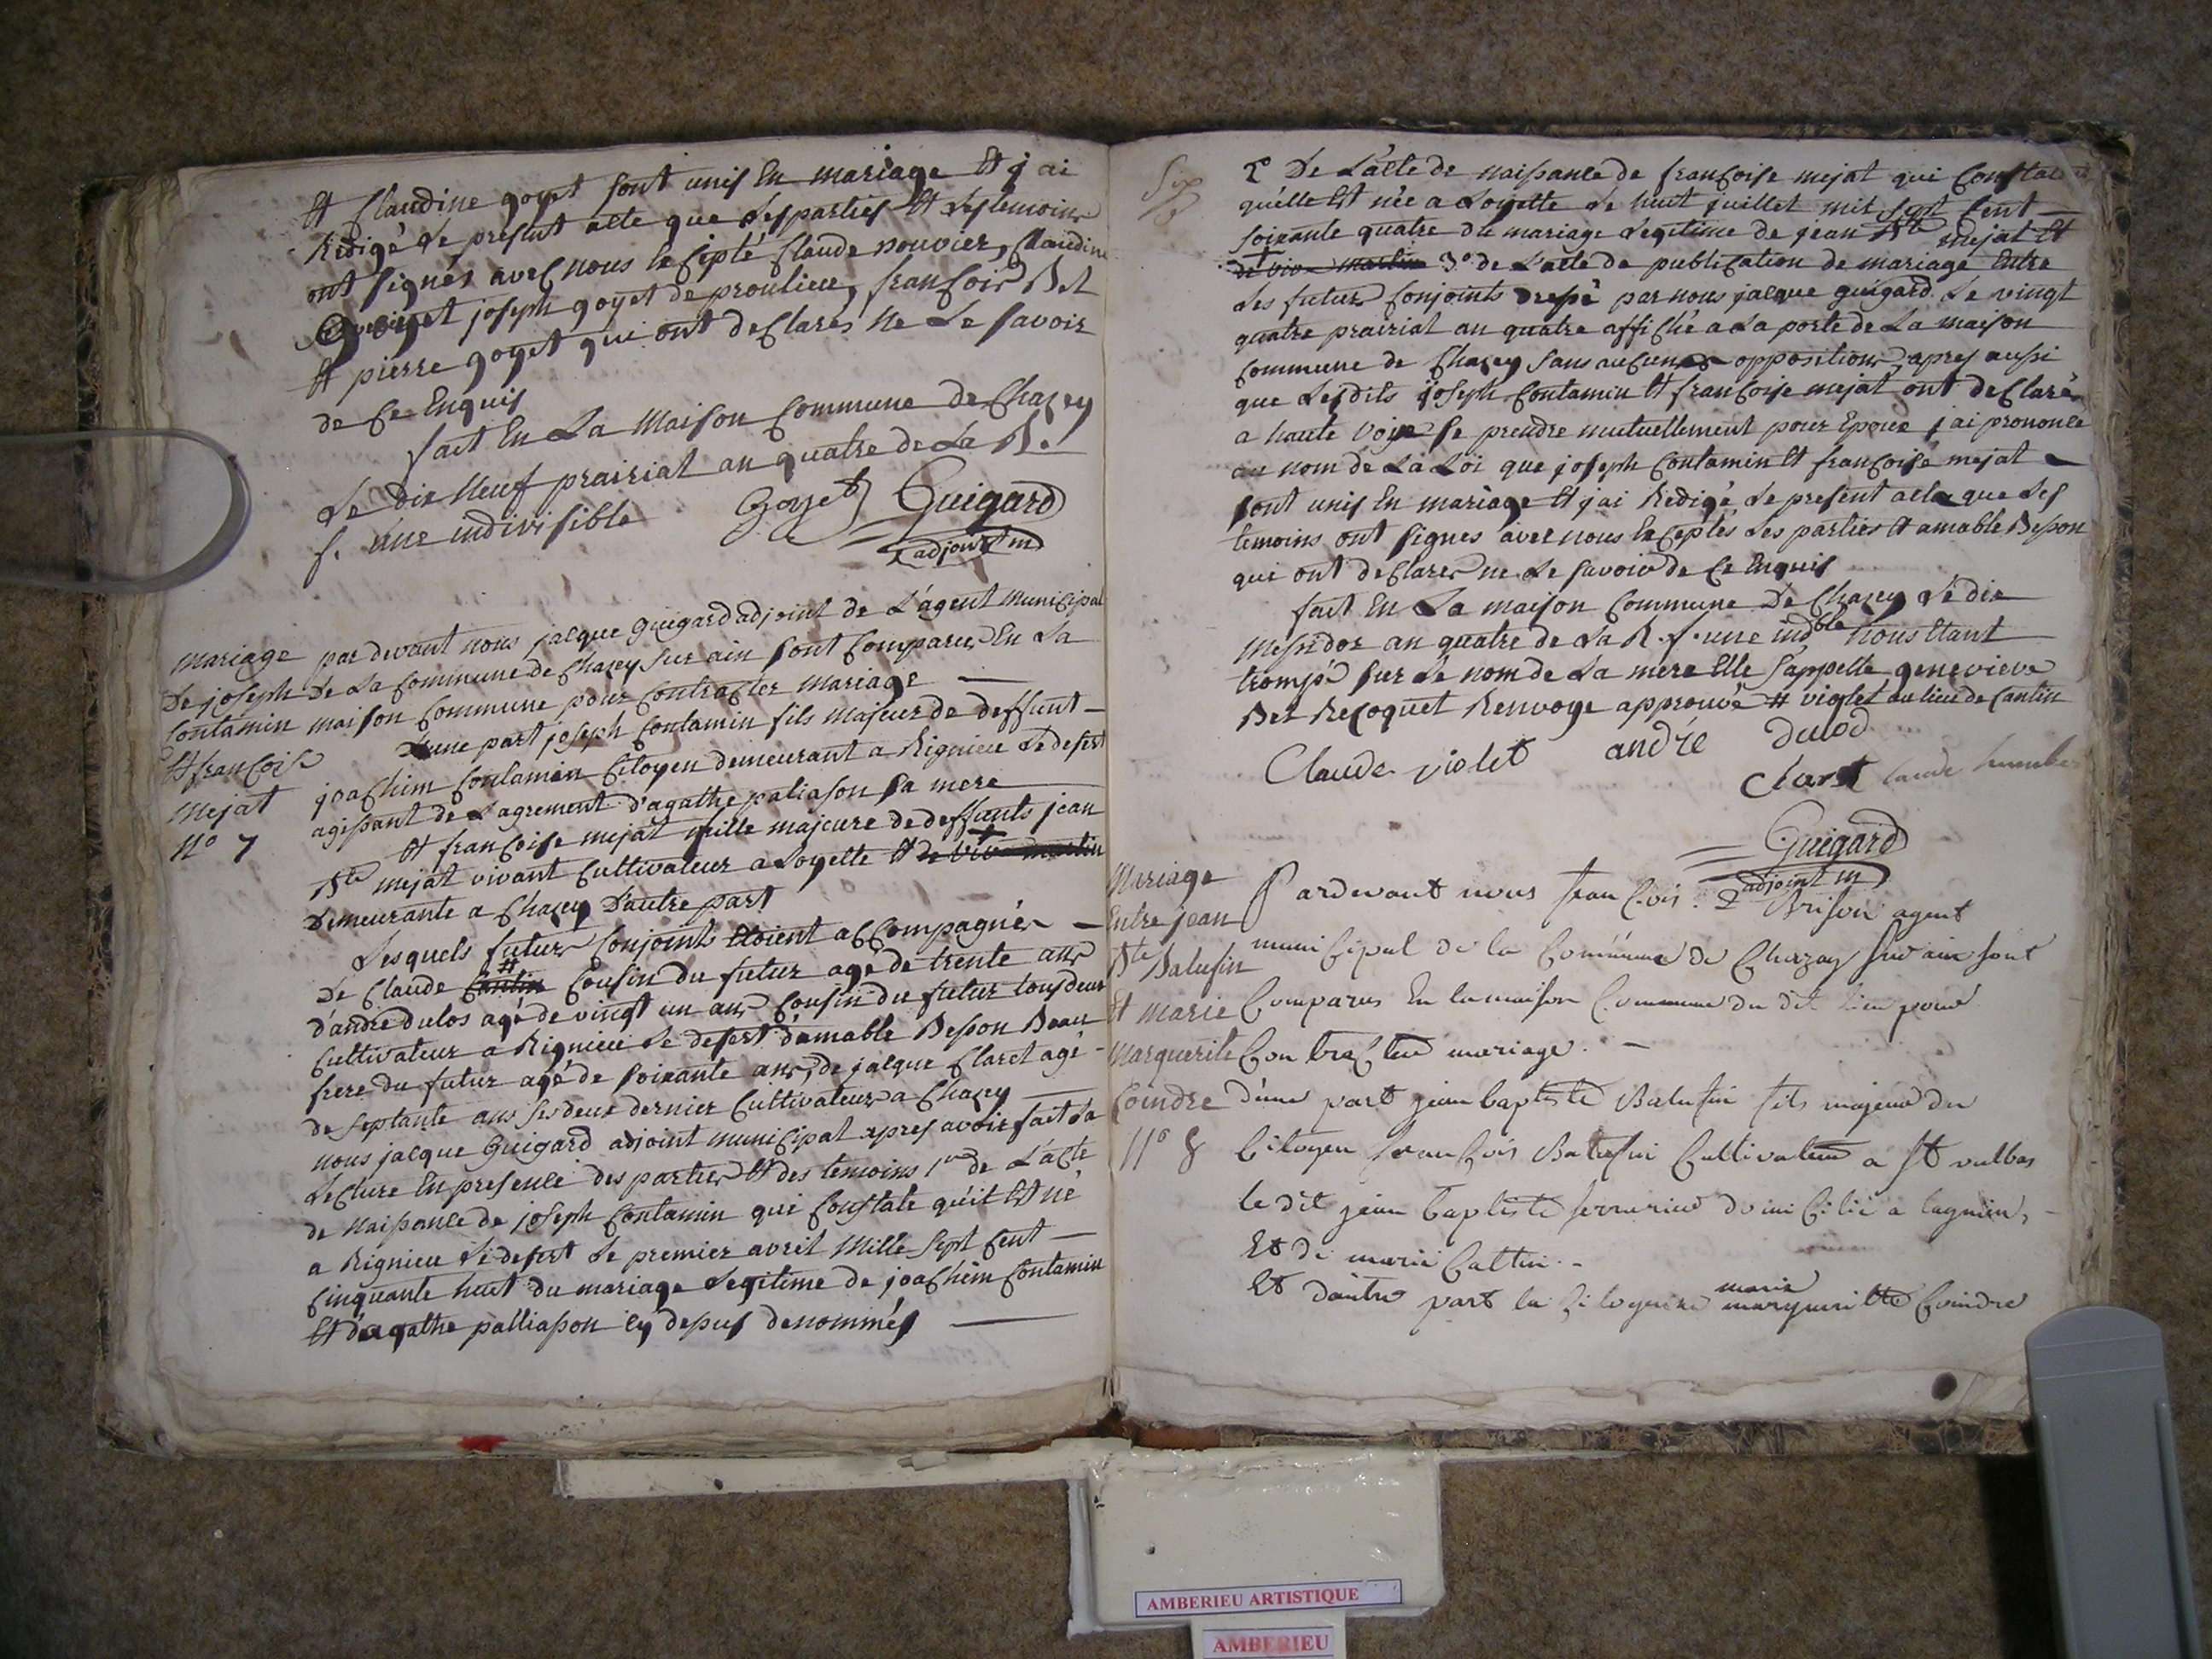 Et Claudine goyet sont unis En mariage Et j ai
Redigé Le present acte que Les parties Et Les temoins
ont signés avec nous Excepté Claude nouvier, Claudine
goyet joseph goyet de proulieu, francois Bel
Et pierre goyet qui ont declarés ne Le savoir
de Ce Enquis
fait En La Maison Commune de Chazey
Le dix neuf prairial an quatre de La R.
f. une indivisible Goyet Guigard
adjoint m
mariage
De joseph
Contamin
Et francoise
Mejat
No 7
par devant nous jacque Guigard adjoint de L'agent Municipal
De La Commune de Chazey sur ain sont Comparus En La
maison Commune pour Contracter mariage
D'une part joseph Contamin fils majeur de deffunt
joachim Contamin Citoyen demeurant a Rignieu Le desert
agissant de L'agrement d'agathe paliason sa mere
Et francoise mejat fille majeure de deffunts jean
Bte mejat vivant Cultivateur a Loyette Et de
Demeurante a Chazey D'autre part
Lesquels futurs Conjoints Etoient accompagnés
De Claude Cantin # Cousin du futur agé de trente ans
d'andre dulos agé de vingt un ans Cousin du futur tous deux
Cultivateur a Rignieu Le desert d'amable Besson Beau
frere du futur agé de soixante ans, de jacque Claret agé
de septante ans les deux dernier Cultivateurs a Chazey
nous jacque Guigard adjoint municipal apres avoir fait La
Lecture En presence des parties Et des temoins 1mt de L'acte
de Naissance de joseph Contamin qui Constate qu'il Est né
a Rignieu Le desert Le premier avril Mille sept Cent
Cinquante huit du mariage Legitime de joachim Contamin
Et d'agathe palliasson cy dessus denommés
Six
2° De L'acte de naissance de francoise mejat qui Constate
qu'elle Est née a Loyette Le huit juillet mil sept Cent
soixante quatre du mariage Legitime de jean Bte mejat Et
3° de L'acte de publication de mariage Entre
Les futurs Conjoints dressé par nous jacque guigard Le vingt
quatre prairial an quatre affiché a La porte de La maison
Commune de Chazey sans aucunes oppositions apres aussi
que Lesdits joseph Contamin Et francoise mejat ont declarés
a haute voix se prendre mutuellement pour Epoux j ai prononcé
au nom de La Loi que joseph Contamin Et francoise mejat
sont unis En mariage Et j ai Redigé Le present acte que Les
temoins ont signes avec nous Exceptés Les parties Et amable Besson
qui ont declares ne Le savoir de Ce Enquis
fait En La maison Commune De Chazey Le dix
Messidor an quatre de La R. f. une indble nous Etant
trompé sur Le nom de La mere Elle s'appelle genevieve
Bel Recoquet Renvoye approuvé # violet au lieu de Cantin
Claude violet andré dulod
Claret
Guigard
adjoint m
Mariage
Entre jean
Bte Balufin
Et Marie
Marguerite
Coindre
No 8
Pardevant nous Jean f.ois Brison agent
municipal de la Commune de Chazay sur ain sont
Comparus En la maison Commune du dit lieu pour
Contracter mariage
d'une part jean baptiste Balufin fils majeur du
Citoyen francois Balufin Cultivateur a St vulbas
le dit jean baptiste serrurier domicilié a lagnieu
Et de marie Cattin
Et d'autre part la Citoyenne marie margueritte Coindre
AMBERIEU ARTISTIQUE
AMBERIEU